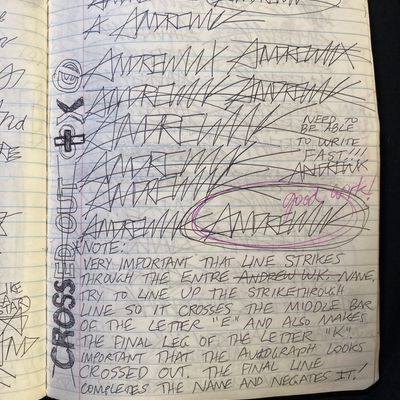 A. ANDREWWK
ANDREWWK ANDREWWK
ANDREWWK ANDREWWK
ANDREWWK
ANDREWWK
ANDREWWK
NEED TO
BE ABLE
TO WRITE
FAST!!!
ANDREWK
good work!
ANDREWWK ANDREWWK
CROSSED OUT
NOTE:
VERY IMPORTANT THAT LINE STRIKES
THROUGH THE ENTRE ANDREW W.K. NAME,
TRY TO LINE UP THE STRIKETHROUGH
LINE SO IT CROSSES THE MIDDLE BAR
OF THE LETTER "E" AND ALSO MAKES
THE FINAL LEG OF THE LETTER "K"
IMPORTANT THAT THE AUTOGRAPH LOOKS
CROSSED OUT. THE FINAL LINE
COMPLETES THE NAME AND NEGATES IT!